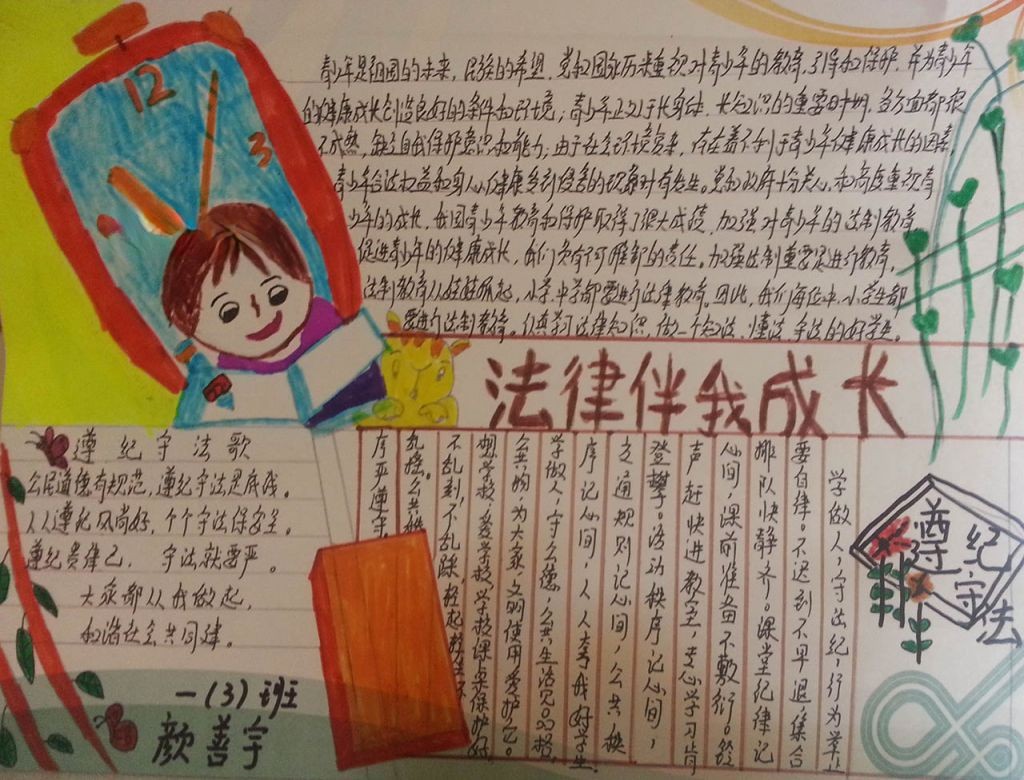 12
3
青少年是祖国的未来，民族的希望，党和国家历来重视对青少年的教育，引导和保护，并为青少年
的健康成长创造良好的条件和环境；青少年正处于长身体，长知识的重要时期，各方面都很
不成熟，缺乏自我保护意识和能力；由于社会环境复杂，存在着不利于青少年健康成长的因素，
青少年合法权益和身心健康受到侵害的现象时有发生。党和政府十分关心，和高度重视青
少年的成长，我国青少年教育和保护取得了很大成绩，加强对青少年的法制教育，
促进青少年的健康成长，我们负有不可推卸的责任。加强法制重要是进行教育，
法制教育从娃娃抓起，小学中学都要进行法律教育。因此，我们每位中小学生都
要进行法制教育。认真学习法律知识，做一个知法、懂法、守法的好学生。
法律伴我成长
遵纪守法歌
公民道德有规范，遵纪守法是底线。
人人遵纪风尚好，个个守法保安全。
遵纪贵律己，守法就要严。
大家都从我做起，
和谐社会共同建。
一(3)班
颜善宇
学做人，守法纪，行为举止
要自律。不迟到不早退集合
排队快静齐。课堂纪律记
心间，课前准备不敷衍。铃
声赶快进教室，专心学习肯
登攀。活动秩序记心间，
交通规则记心间，公共秩
序记心间，人人夸我好学生。
学做人，守公德，公共生活见品格，
公共物，为大家，文明使用爱护它。
想学校，爱学校，学校课桌保护好，
不乱刻，不乱踩轻起轻坐不
乱摇。公共秩
序严遵守。
遵纪守法